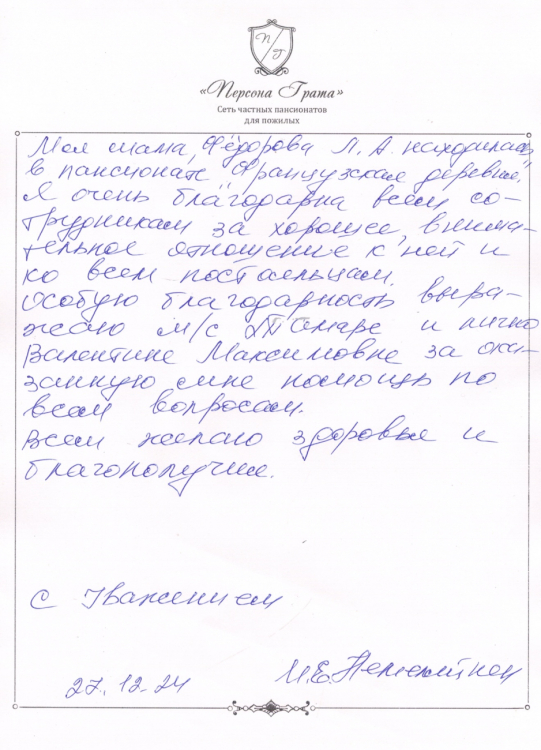 П Г
«Персона Грата»
Сеть частных пансионатов
для пожилых
Моя мама, Фёдорова Л. А. находилась
в пансионате "Французская деревня".
Я очень благодарна всем со-
трудникам за хорошее, внима-
тельное отношение к ней и
ко всем постояльцам.
Особую благодарность выра-
жаю м/с Тамаре и лично
Валентине Максимовне за ока-
занную мне помощь по
всем вопросам.
Всем желаю здоровья и
благополучия.
С Уважением
27.12.24
И.Е.